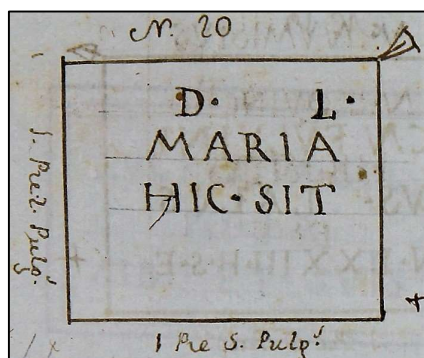 N. 20
D · L ·
MARIA
HIC · SIT
1. Pie 2. Pulg.ˢ
1 Pie 5. Pulg.ˢ